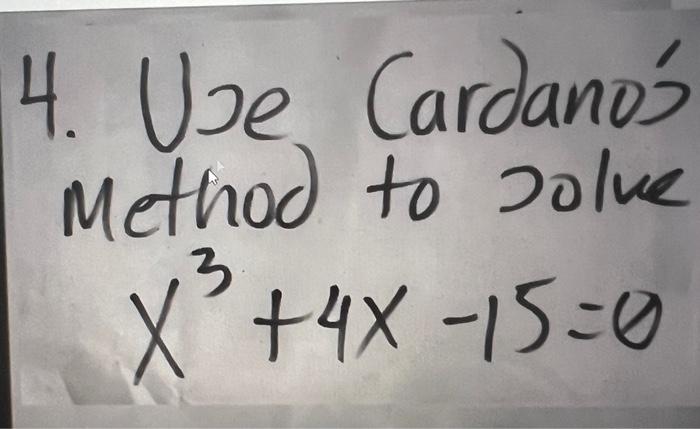 4. Use Cardano's
Method to solve
x³ + 4x - 15 = 0